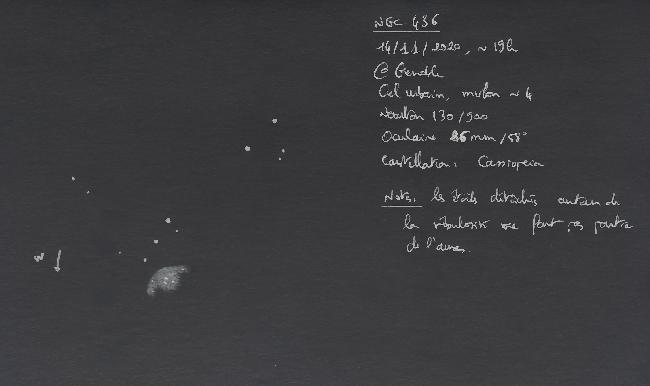 NGC 436
14/11/2020, ~ 19h
@ Grenoble
Ciel urbain, mvlon ~ 4
Newton 130/900
Oculaire 25mm/58°
Constellation: Cassiopeia
Notes: les étoiles détachées autour de
la nébulosité ne font pas partie
de l'amas.
W